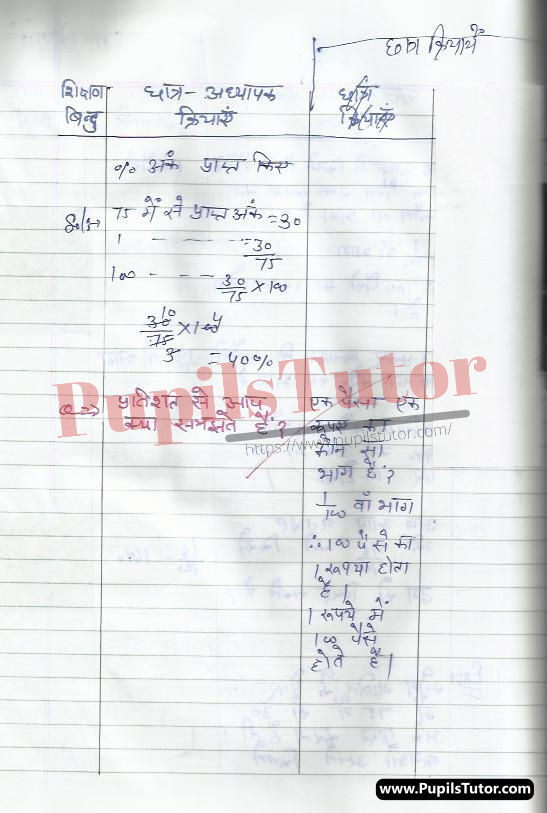 छात्र क्रियायें
शिक्षण छात्र-अध्यापक छात्र
बिन्दु क्रियाएँ क्रियाएँ
% अंक प्राप्त किए
75 में से प्राप्त अंक = 30
1 - - - - = 30/75
100 - - - 30/75 × 100
30/75 × 100
10 4
3 = 40%
प्रतिशत से आप
क्या समझते हैं?
एक पैसा एक
रूपए का
कौन सा
भाग है?
1/100 वाँ भाग
∴ 100 पैसे का
1 रूपया होता
है।
1 रूपये में
100 पैसे
होते है।
PupilsTutor
https://www.pupilstutor.com/
www.PupilsTutor.com